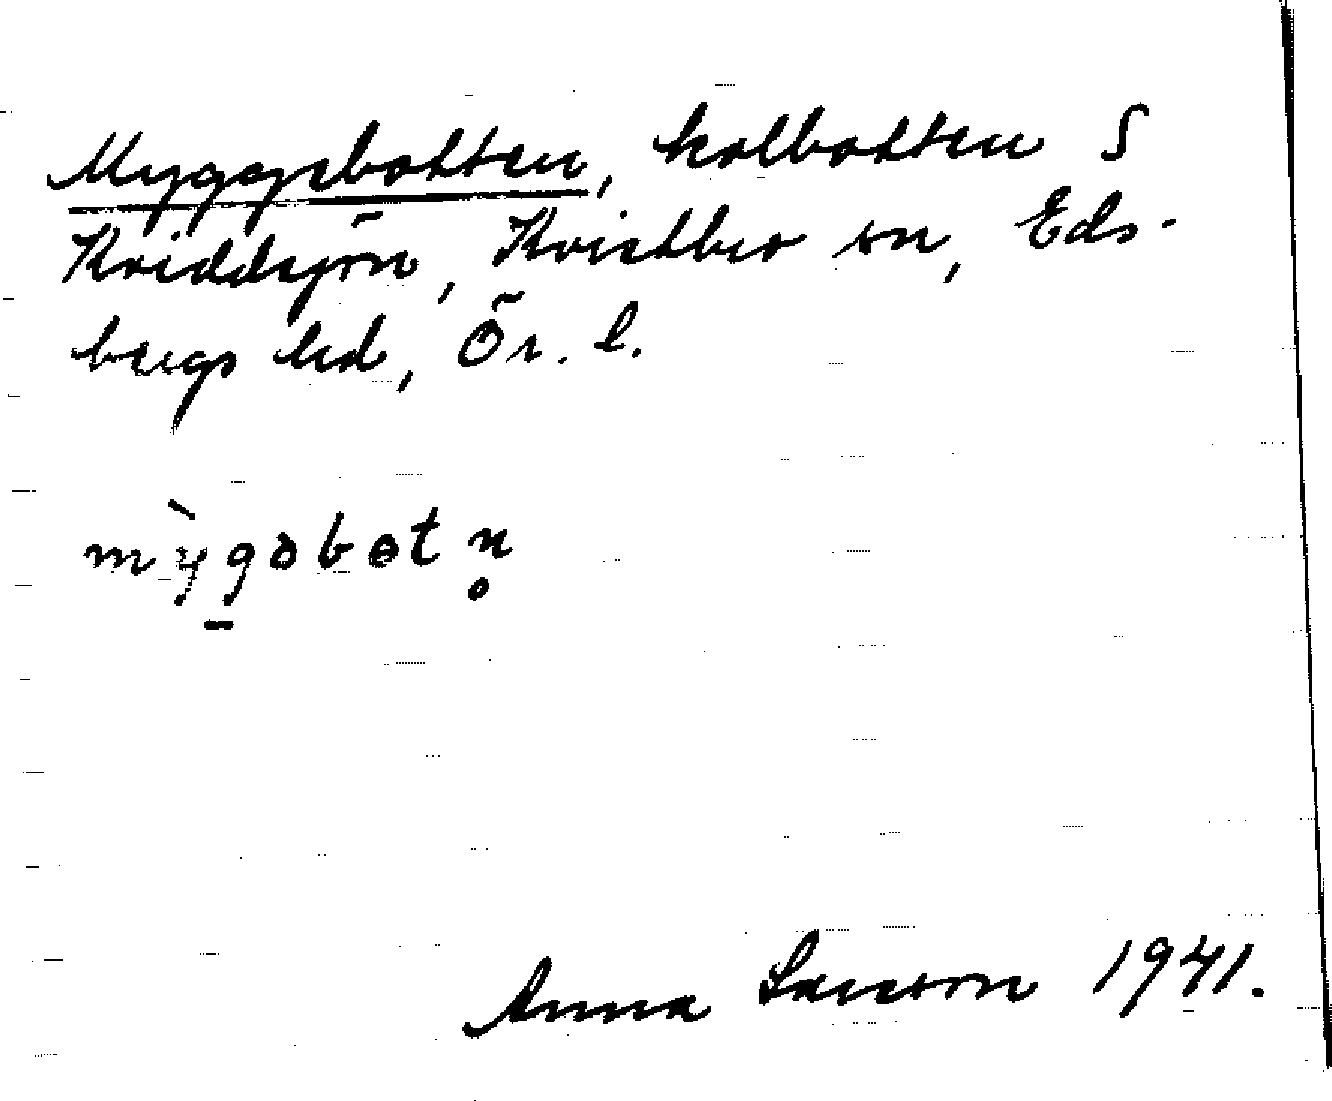 Myggebotten, kolbotten S
Kviddsjön, Kvistbro sn, Eds-
bergs hd, Ör. l.
mỳgəbɵtn̥
Anna Larsson 1941.